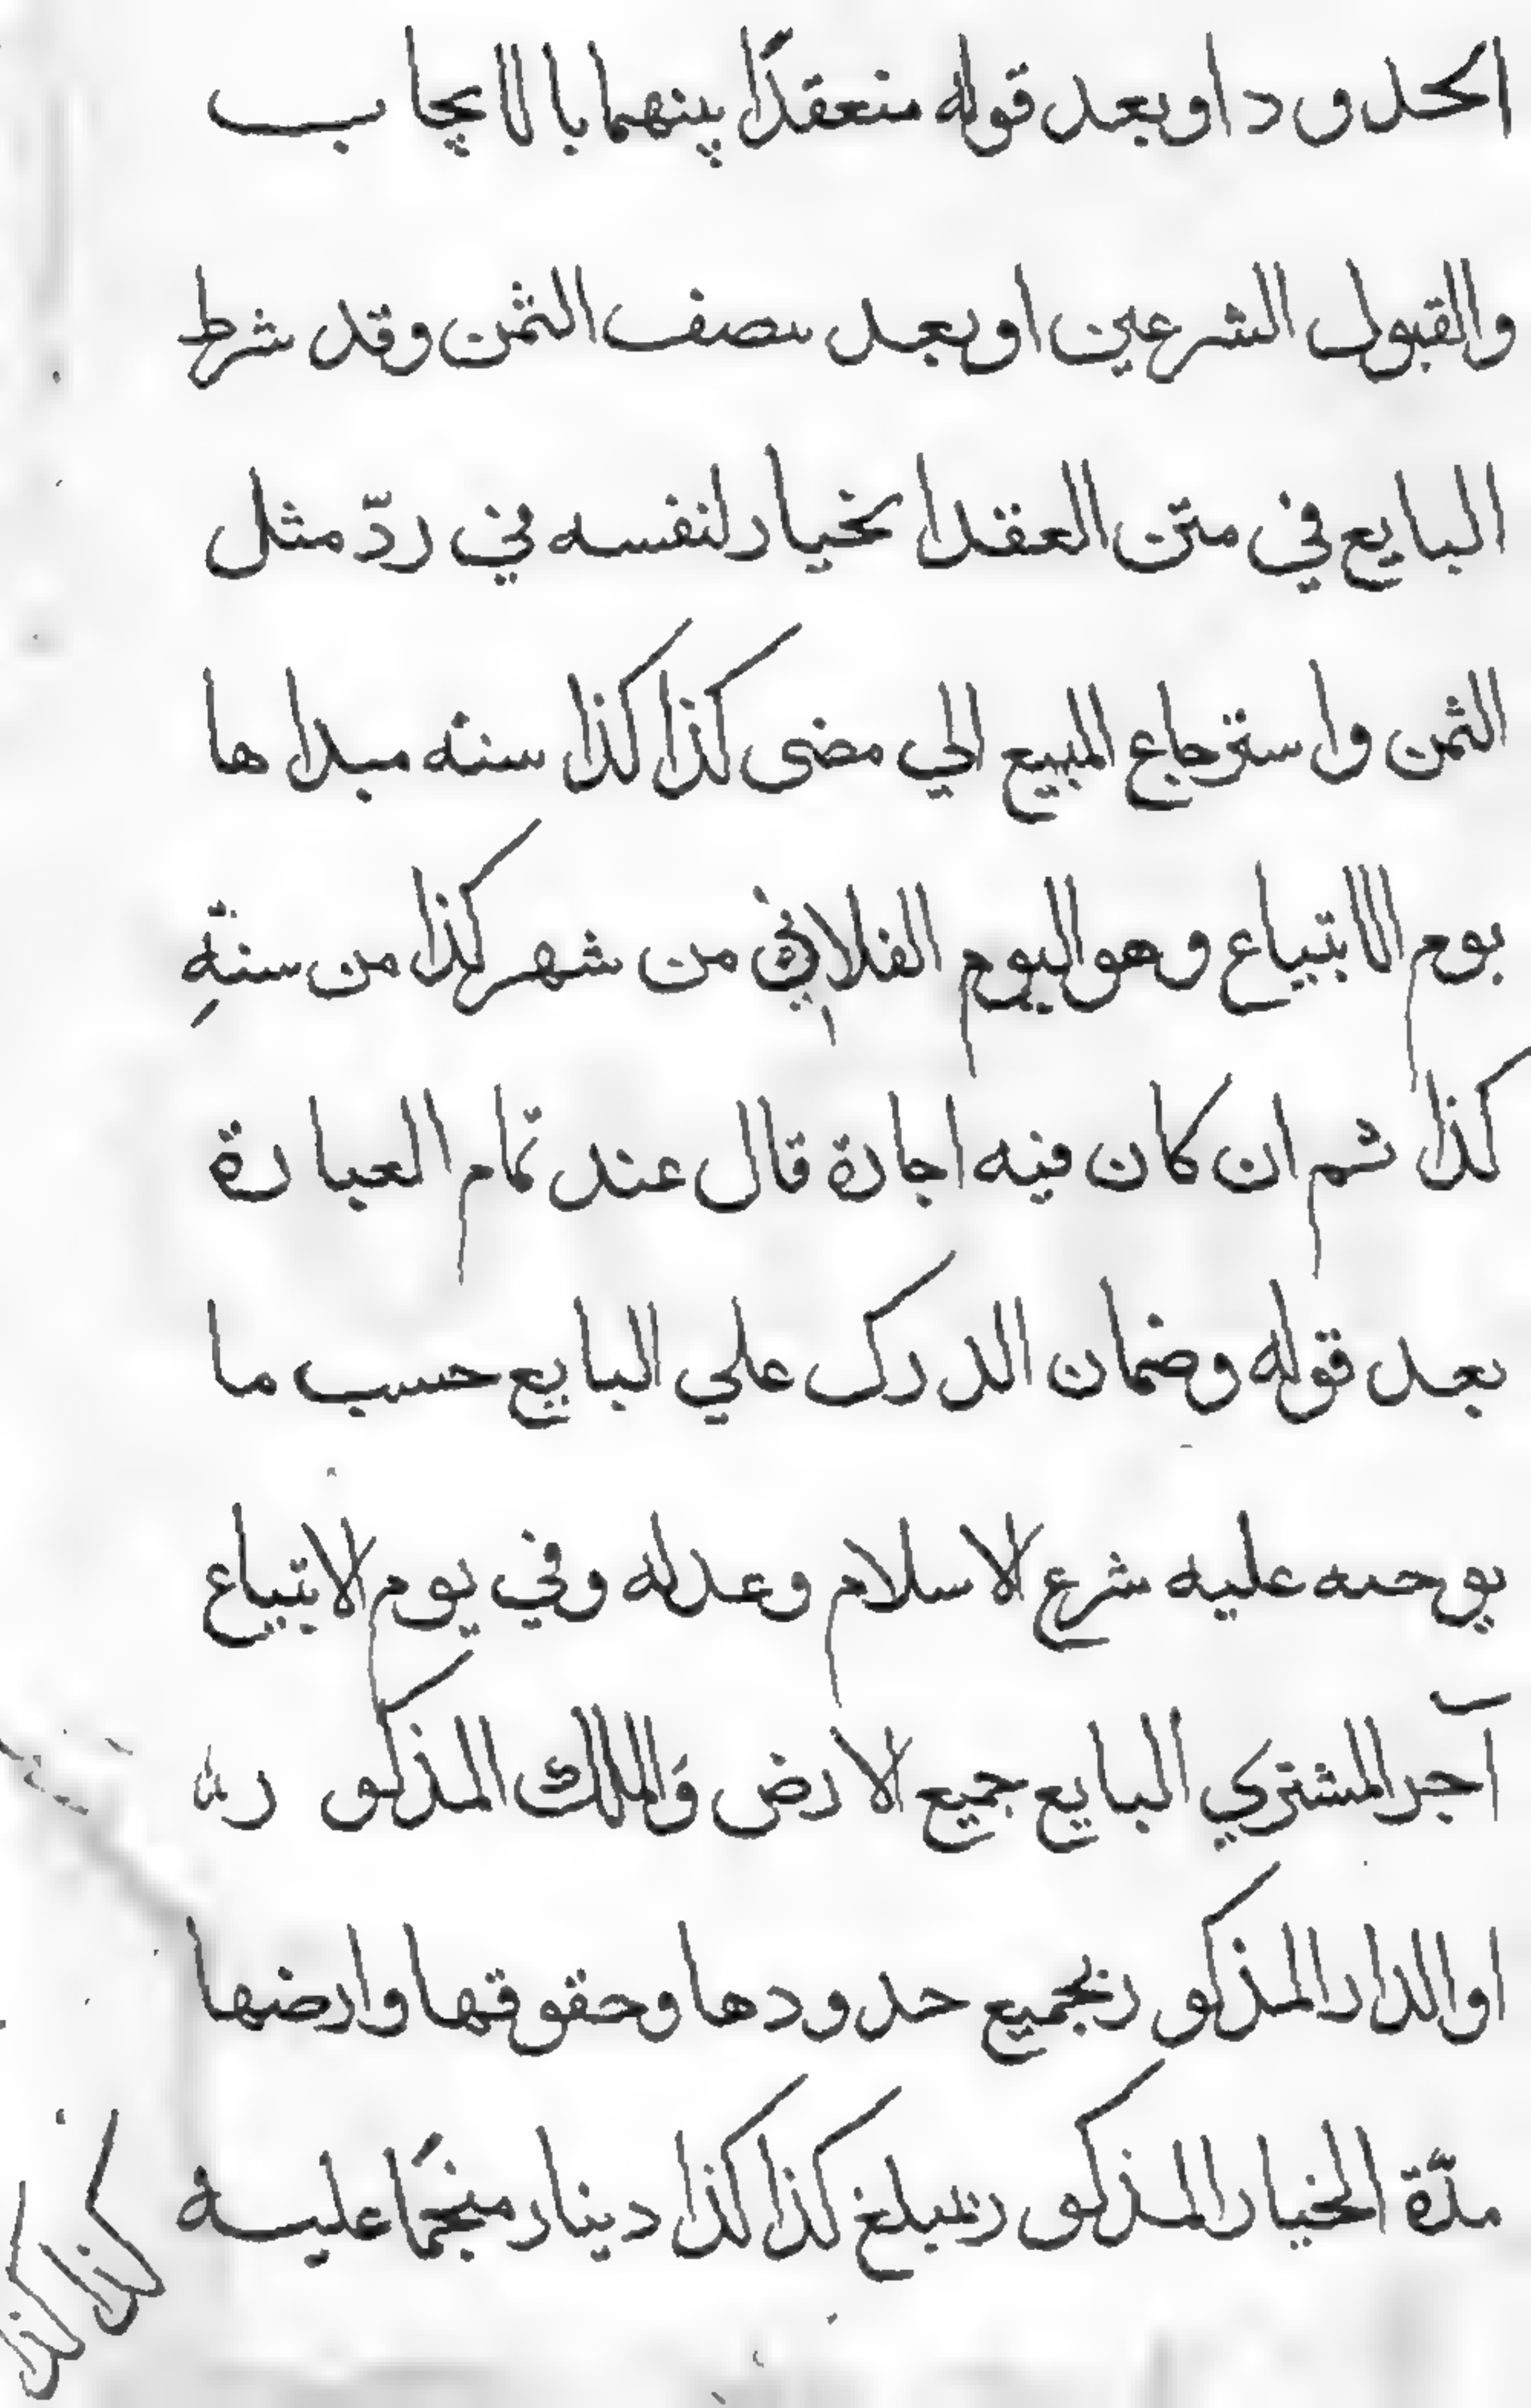 الحدود او بعد قوله منعقدًا بينهما بالايجاب
والقبول الشرعيين او بعد نصف الثمن وقد شرط
البايع في متن العقد الخيار لنفسه في ردّ مثل
الثمن واسترجاع المبيع الي مضى كذا كذا سنه مبداها
يوم الابتياع وهو اليوم الفلاني من شهر كذا من سنةِ
كذا ثم ان كان فيه اجارة قال عند تمام العبارة
بعد قوله وضمان الدرك علي البايع حسب ما
يوجبه عليه شرع الاسلام وعدله وفي يوم الابتياع
آجر المشتري البايع جميع الارض وَالملك المذكور
او الدار المذكور بجميع حدودها وحقوقها وارضها
مدّة الخيار المذكور بمبلغ كذا كذا دينار منجّمًا عليه
كذا كذا